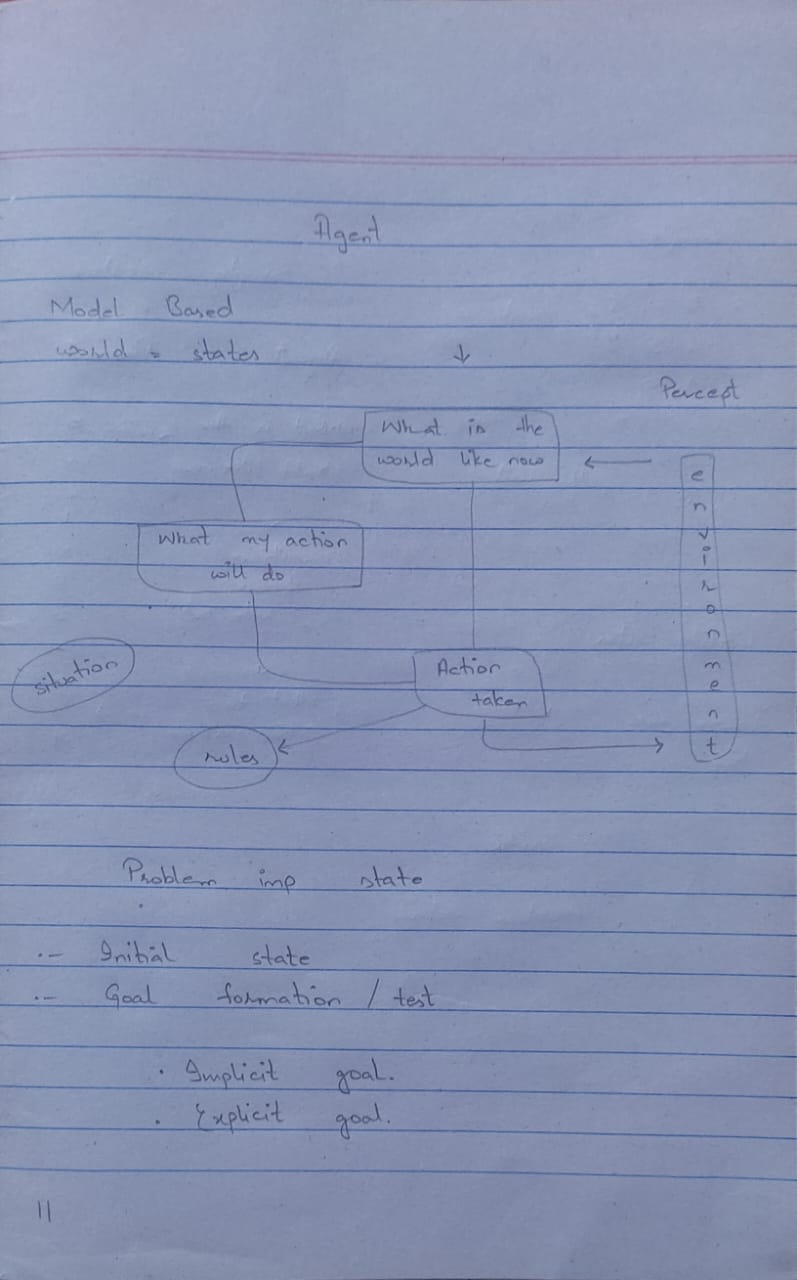 Agent
Model Based
world = states
Percept
What is the
world like now
environment
What my action
will do
situation
Action
taken
rules
Problem imp state
Initial state
Goal formation / test
Implicit goal.
Explicit goal.
11